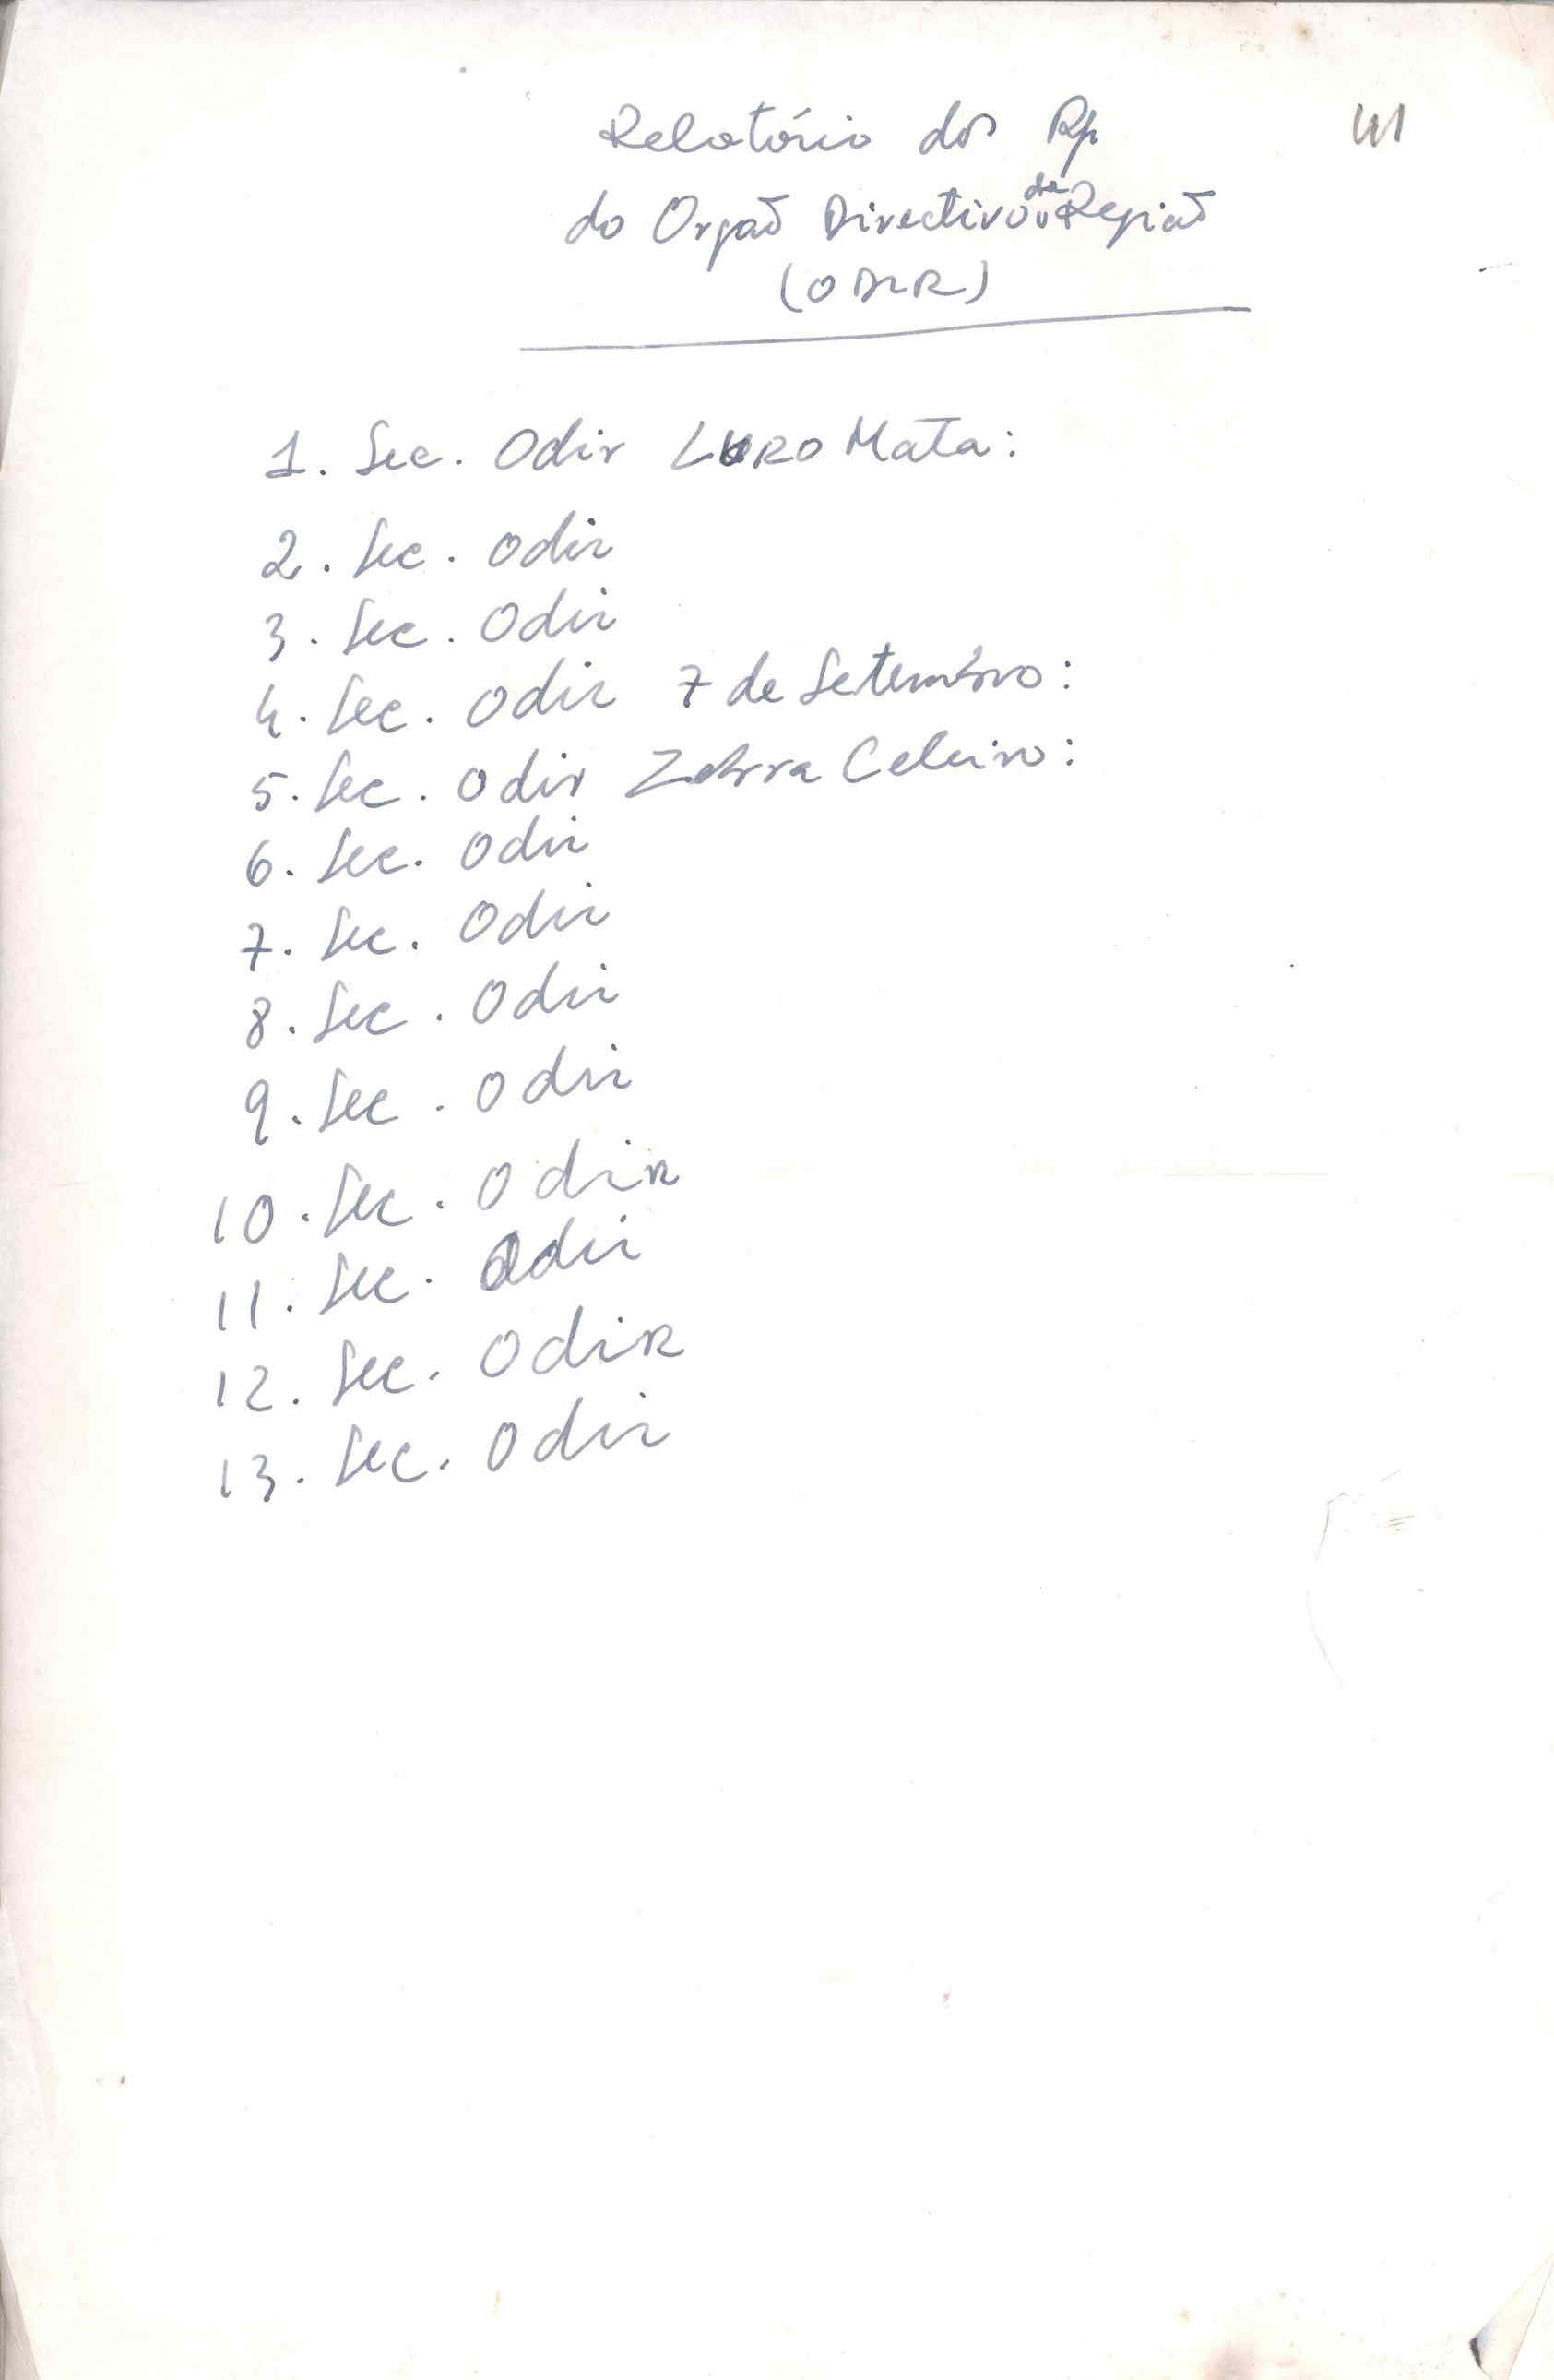 Relatório dos Rp
41
do Orgaõ Directivo da Regiaõ
(ODIR)
1. Sec. Odir LUROMata:
2. Sec. Odir
3. Sec. Odir
4. Sec. Odir 7 de Setembro:
5. Sec. Odir Zebrra Celeiro:
6. Sec. Odir
7. Sec. Odir
8. Sec. Odir
9. Sec. Odir
10. Sec. OdiR
11. Sec. Odir
12. Sec. OdiR
13. Sec. Odir